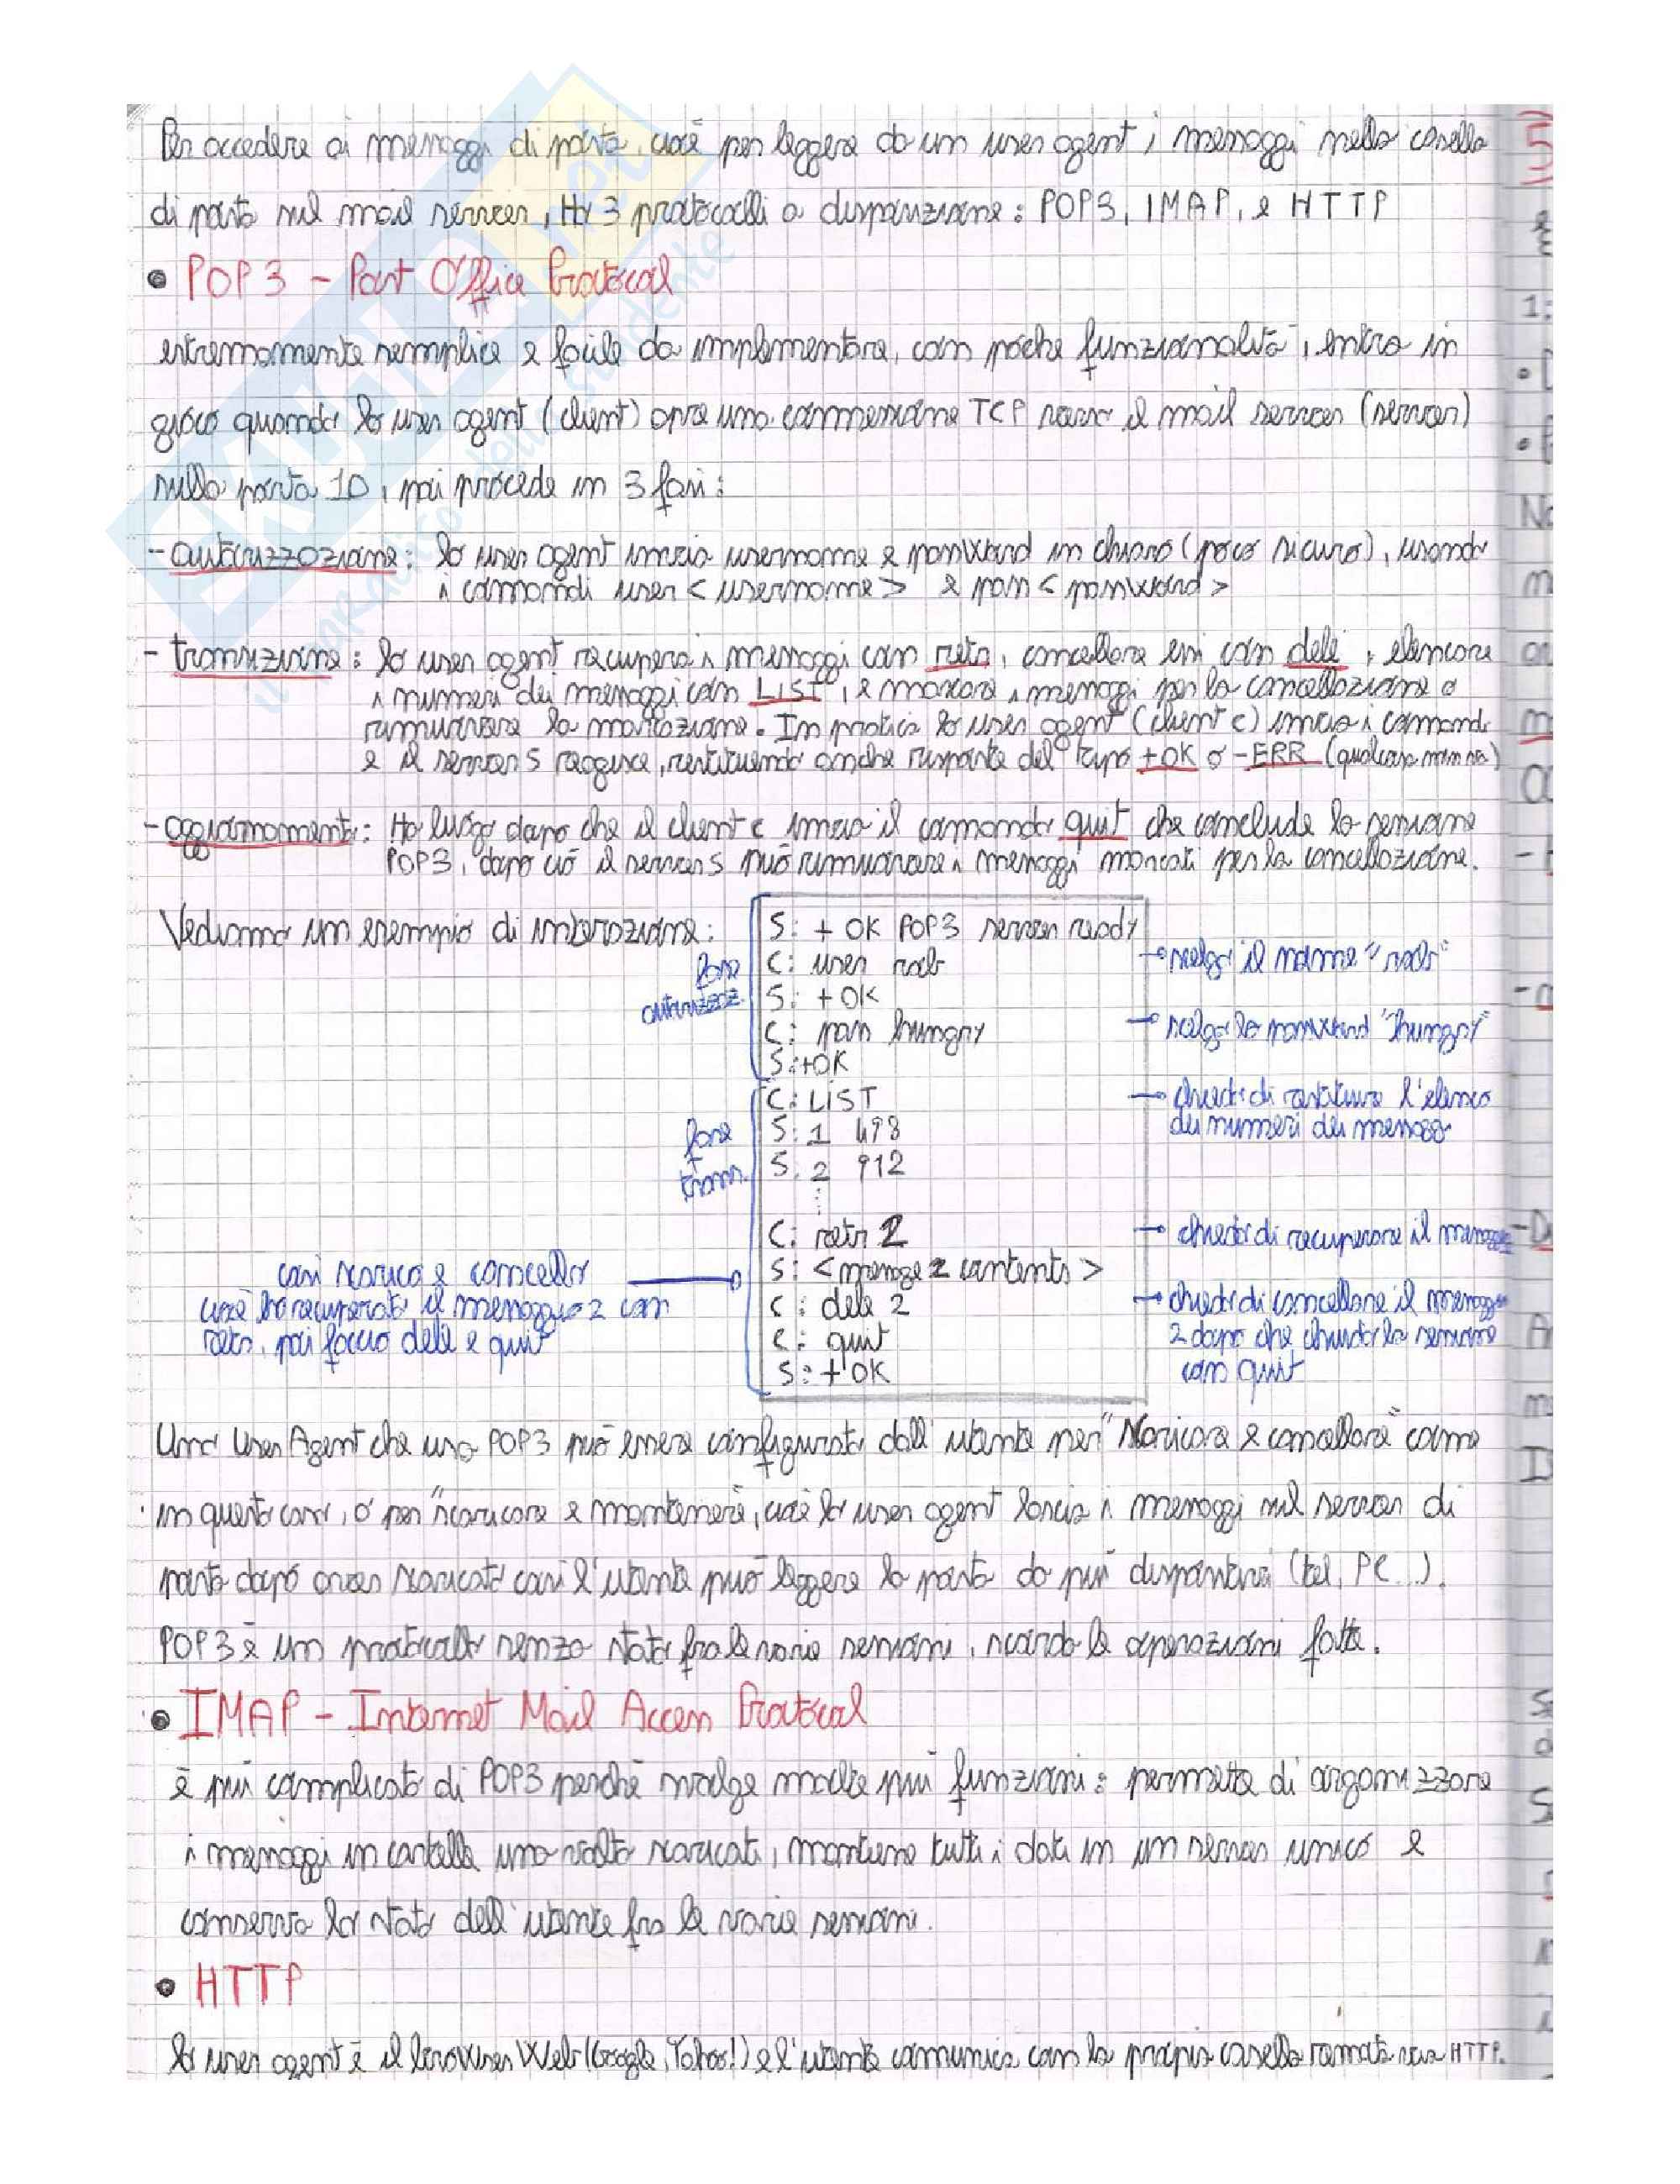 Per accedere ai messaggi di posta, cioè per leggere da un user agent i messaggi nella casella
di posta sul mail server, Ho 3 protocolli a disposizione: POP3, IMAP, e HTTP
• POP3 - Post Office Protocol
estremamente semplice e facile da implementare, con poche funzionalità, entra in
gioco quando lo user agent (client) apre una connessione TCP verso il mail server (server)
sulla porta 110, poi procede in 3 fasi:
- autorizzazione: lo user agent invia username e password in chiaro (poco sicuro), usando
i comandi user <username> e pass <password>
- transizione: lo user agent recupera i messaggi con retr, cancellare essi con dele, elencare
i numeri dei messaggi con LIST, e marcare i messaggi per la cancellazione o
rimuovere la marcazione. In pratica lo user agent (client c) invia i comandi
e il server S reagisce, restituendo anche risposte del tipo +OK o -ERR (qualcosa non va)
- aggiornamento: Ha luogo dopo che il client c invia il comando quit che conclude la sessione
POP3, dopo ciò il server S può rimuovere i messaggi marcati per la cancellazione.
Vediamo un esempio di interazione:
fase autorizzaz.
S: +OK POP3 server ready
C: user rob → scelgo il nome "rob"
S: +OK
C: pass hungry → scelgo la password "hungry"
S: +OK
fase trans.
C: LIST → chiedo di restituire l'elenco
dei numeri dei messaggi
S: 1 498
S: 2 912
⋮
C: retr 2 → chiedo di recuperare il messaggio
S: <message 2 contents>
C: dele 2 → chiedo di cancellare il messaggio
2 dopo che chiudo la sessione
con quit
C: quit
S: +OK
così scarico e cancello
cioè ho recuperato il messaggio 2 con
retr, poi faccio dele e quit
Uno User Agent che usa POP3 può essere configurato dall'utente per "Scaricare e cancellare" come
in questo caso, o per "scaricare e mantenere", cioè lo user agent lascia i messaggi sul server di
posta dopo averli scaricati così l'utente può leggere la posta da più dispositivi (tel, PC...).
POP3 è un protocollo senza stato fra le varie sessioni, scorda le operazioni fatte.
• IMAP - Internet Mail Access Protocol
è più complicato di POP3 perché svolge molte più funzioni: permette di organizzare
i messaggi in cartelle una volta scaricati, mantiene tutti i dati in un server unico e
conserva lo stato dell'utente fra le varie sessioni.
• HTTP
lo user agent è il browser Web (Google, Yahoo!) e l'utente comunica con la propria casella remota via HTTP.